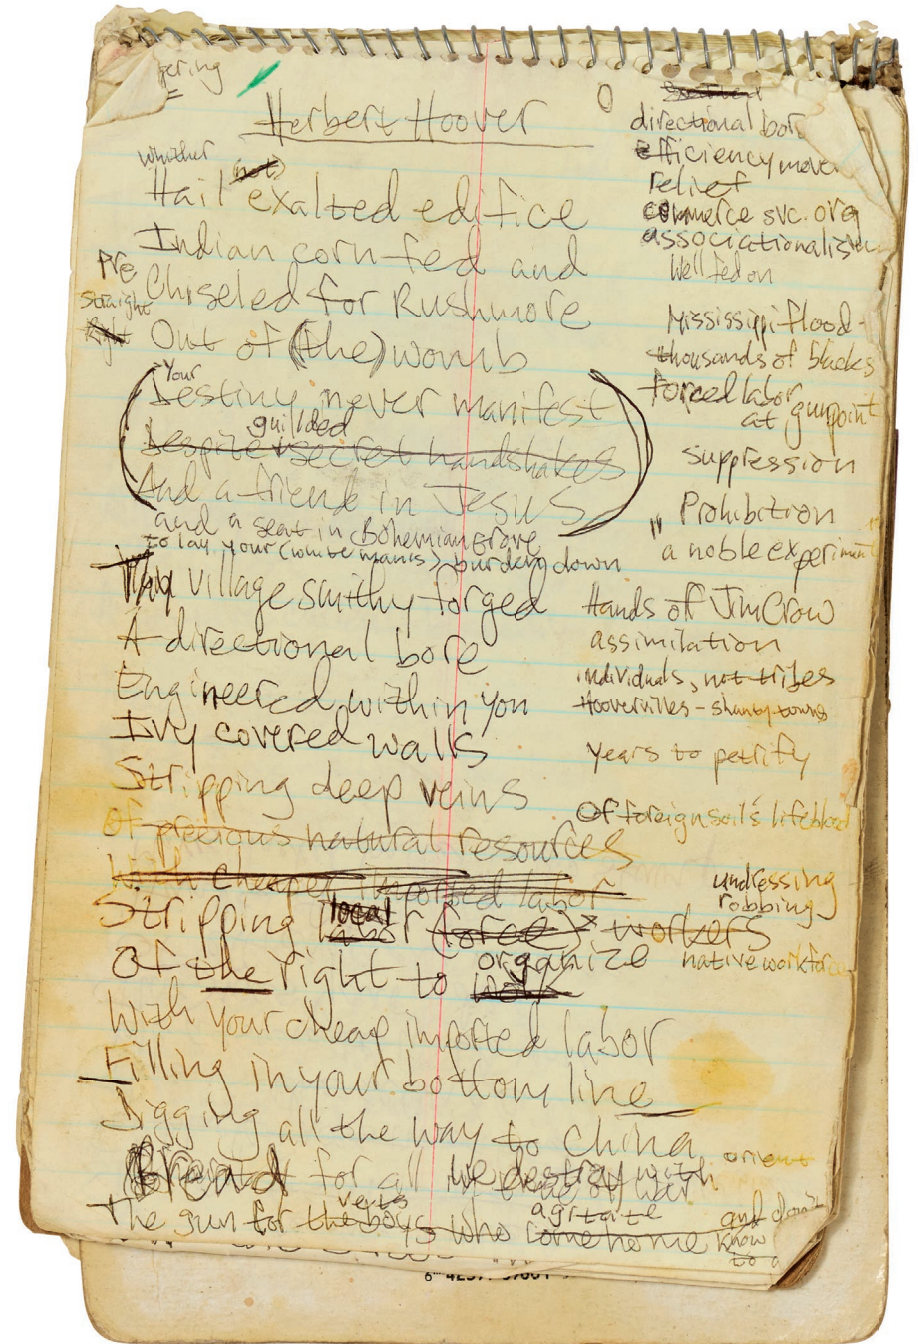 pering
Herbert Hoover
whither
(not)
Hail exalted edifice
Indian corn fed and
Pre
Chiseled for Rushmore
straight
Right
Out of (the) womb
Your
Destiny never manifest
guilded
Despite secret handshakes
And a friend in Jesus
and a seat in Bohemian Grove
to lay your (white man's) burden down
village smithy forged
A directional bore
Engineered within you
Ivy covered walls
Stripping deep veins
Of precious natural resources
With cheaper imported labor
Stripping local labor (force) workers
Of the right to organize work
With your cheap imported labor
Filling in your bottom line
Digging all the way to China
for all we destroy with
The gun for the boys who come home
vets
agitate
directional bor
efficiency move
relief
commerce svc. org
associationalism
Well fed on
Mississippi flood -
thousands of blacks
forced labor
at gunpoint
suppression
" Prohibition
a noble experiment
Hands off Jim Crow
assimilation
individuals, not tribes
Hoovervilles - shanty towns
years to petrify
Of foreign soil's lifeblood
undressing
robbing
native workforce
orient
and don't
know
to a